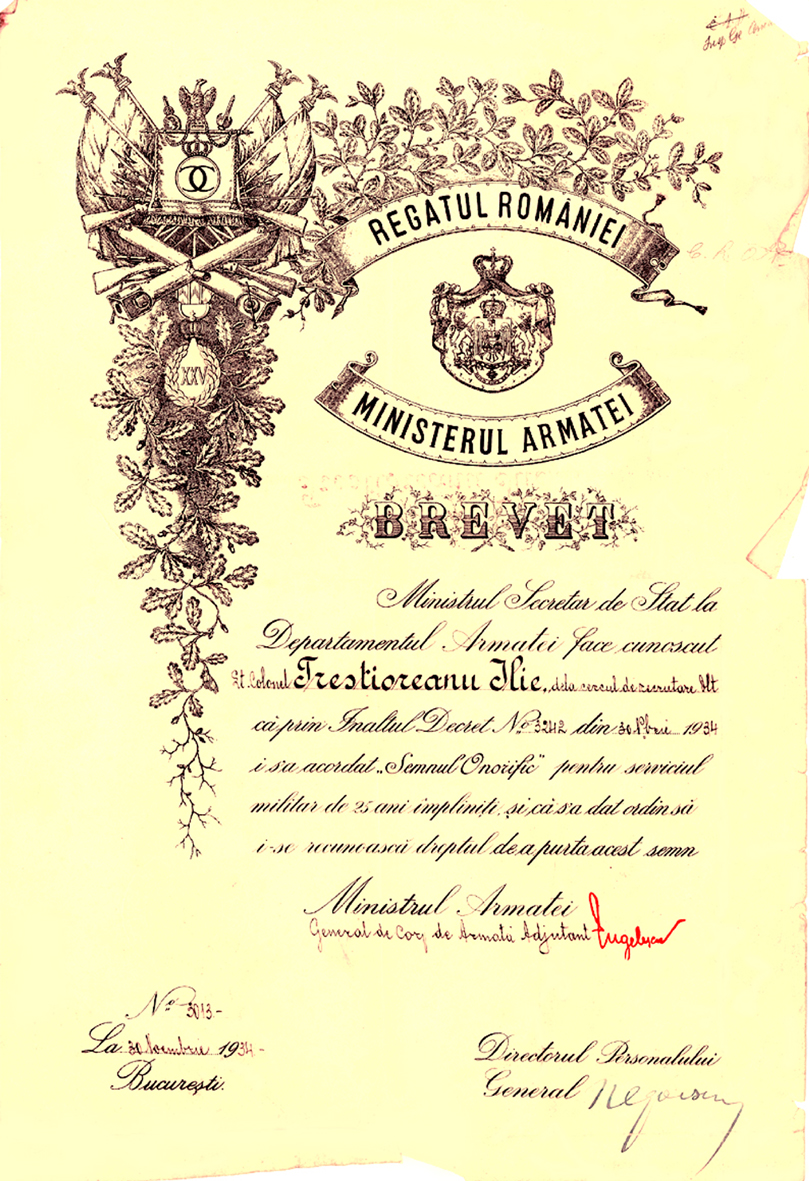 XXV
REGATUL ROMÂNIEI
MINISTERUL ARMATEI
BREVET
Ministrul Secretar de Stat la
Departamentul Armatei face cunoscut
Lt. Colonel Trestioreanu Ilie, dela cercul de recrutare Olt
că prin Inaltul Decret No 3242 din 30 Nbrie 1934
i s'a acordat „Semnul Onorific" pentru serviciul
militar de 25 ani impliniți, și că s'a dat ordin să
i-se recunoască dreptul de a purta acest semn
Ministrul Armatei
General de Corp de Armată Adjutant
No 3013-
La 30 Noembrie 1934-
București.
Directorul Personalului
General